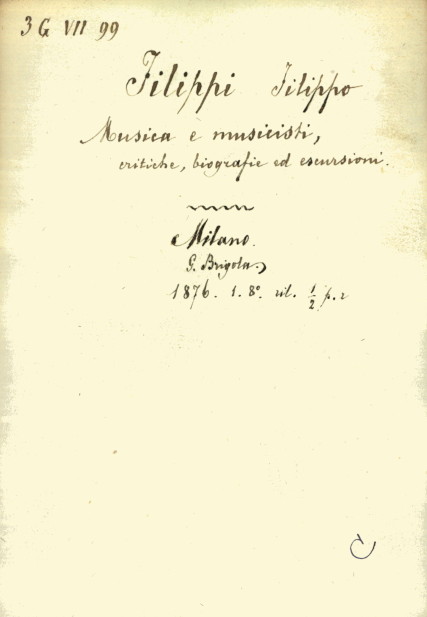 3 G VII 99
Filippi Filippo
Musica e musicisti,
critiche, biografie ed escursioni.
Milano.
G. Brigola.
1876. 1. 8º. ril. ½ p. r